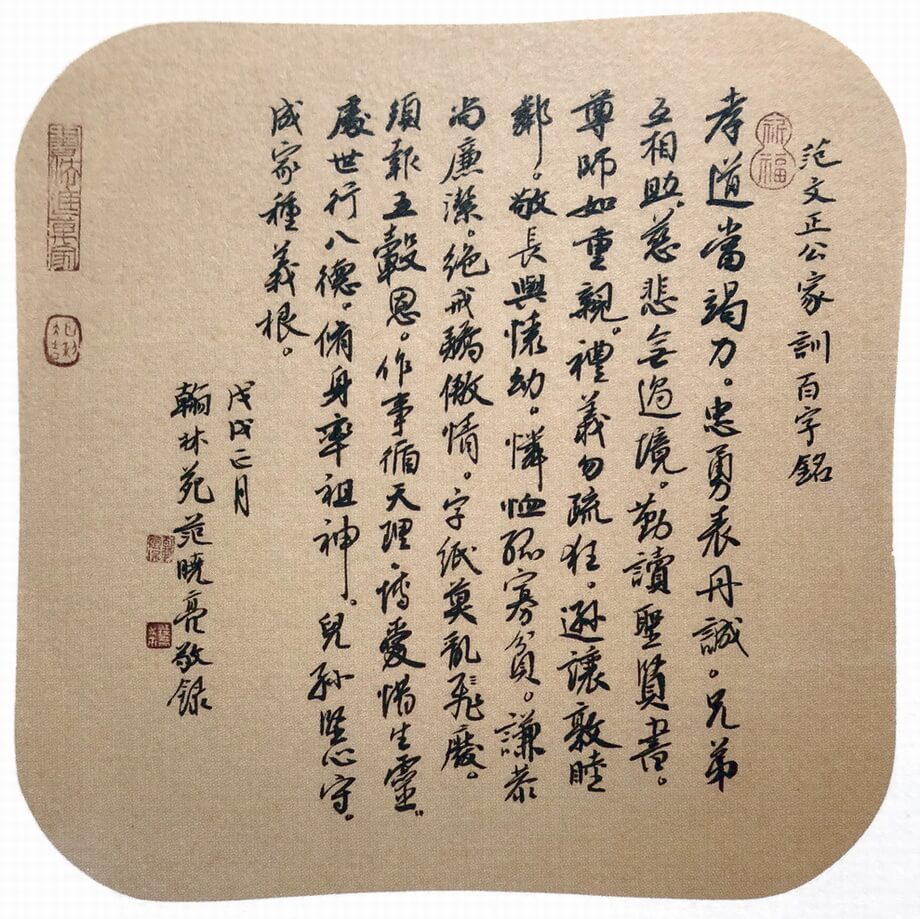 范文正公家訓百字銘
孝道當竭力。忠勇表丹誠。兄弟
互相助。慈悲無過境。勤讀聖賢書。
尊師如重親。禮義勿疏狂。遜讓敦睦
鄰。敬長與懷幼。憐恤孤寡貧。謙恭
尚廉潔。絕戒驕傲情。字紙莫亂飛廢。
須報五穀恩。作事循天理。博愛惜生靈。
處世行八德。脩身率祖神。兒孫堅心守。
成家種義根。
戊戌正月
翰林苑范曉亮敬録
書法進萬家